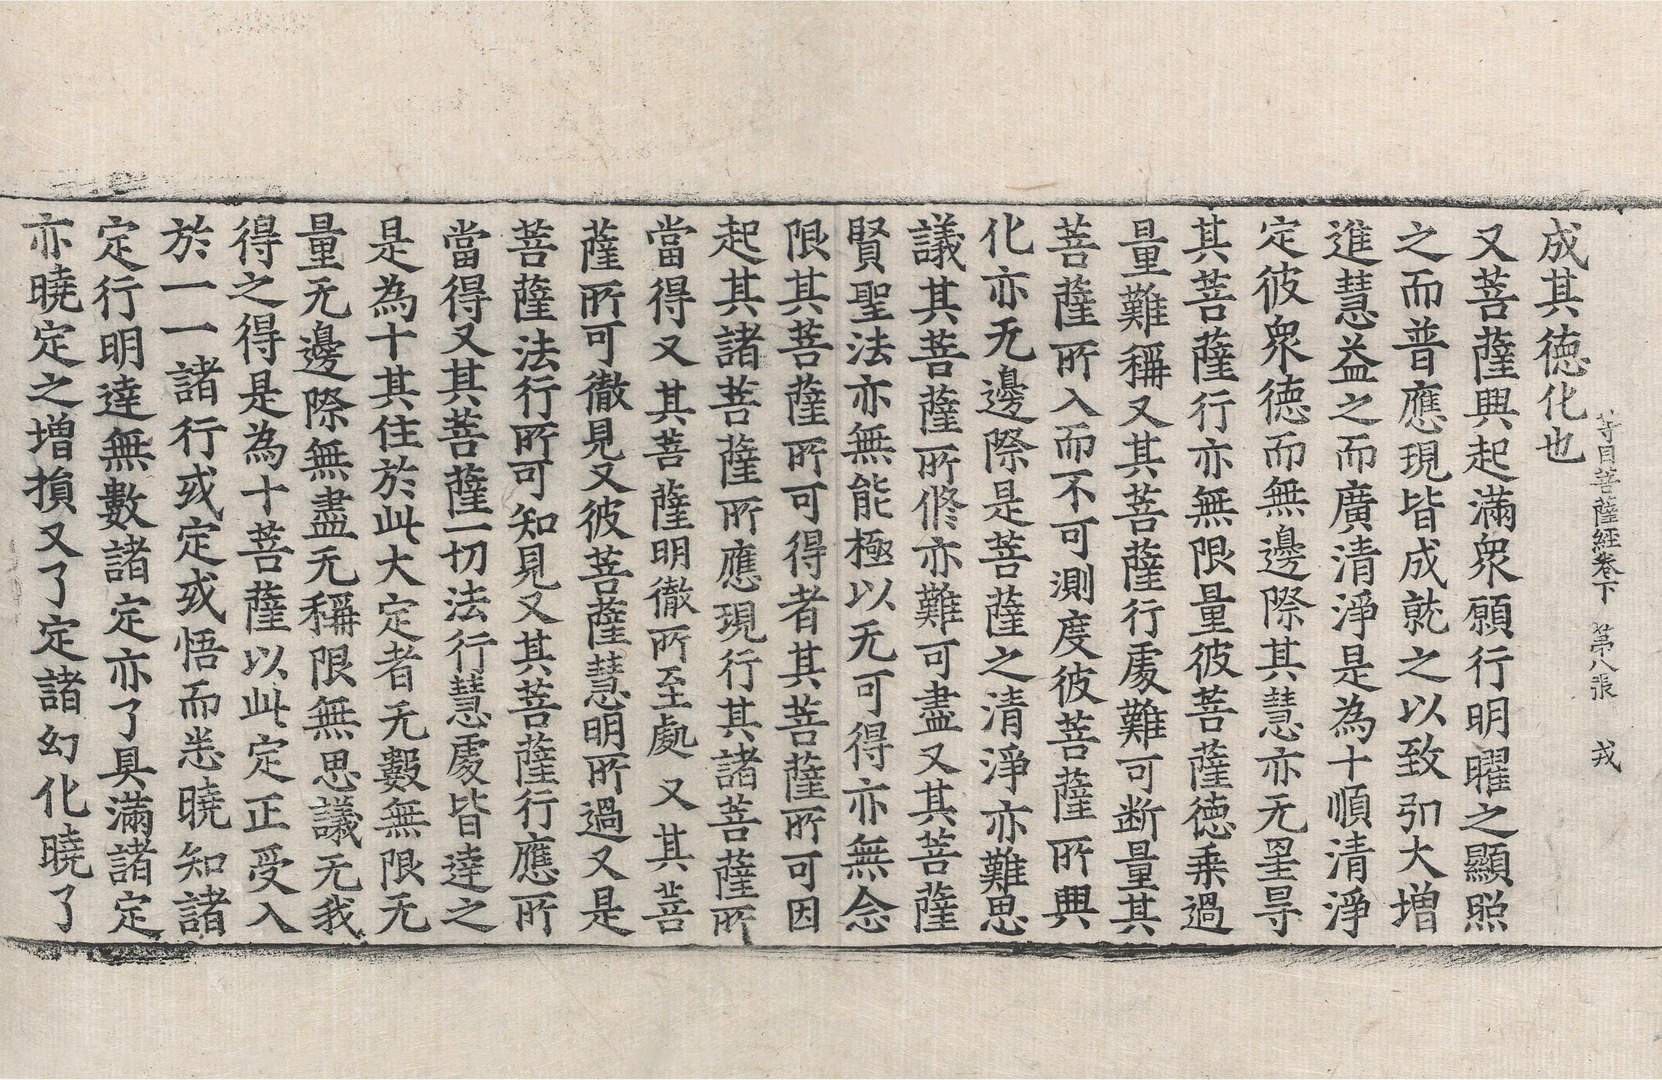 等目菩薩經卷下 第八張 戎
成其德化也
又菩薩興起滿衆願行明曜之顯照
之而普應現皆成就之以致弘大增
進慧益之而廣清淨是為十順清淨
定彼衆德而無邊際其慧亦无罣㝵
其菩薩行亦無限量彼菩薩德乗過
量難稱又其菩薩行處難可断量其
菩薩所入而不可測度彼菩薩所興
化亦无邊際是菩薩之清淨亦難思
議其菩薩所修亦難可盡又其菩薩
賢聖法亦無能極以无可得亦無念
限其菩薩所可得者其菩薩所可因
起其諸菩薩所應現行其諸菩薩所
當得又其菩薩明徹所至處又其菩
薩所可徹見又彼菩薩慧明所過又是
菩薩法行所可知見又其菩薩行應所
當得又其菩薩一切法行慧處皆達之
是為十其住於此大定者无數無限无
量无邊際無盡无稱限無思議无我
得之得是為十菩薩以此定正受入
於一一諸行或定或悟而悉曉知諸
定行明達無數諸定亦了具滿諸定
亦曉定之增損又了定諸幻化曉了